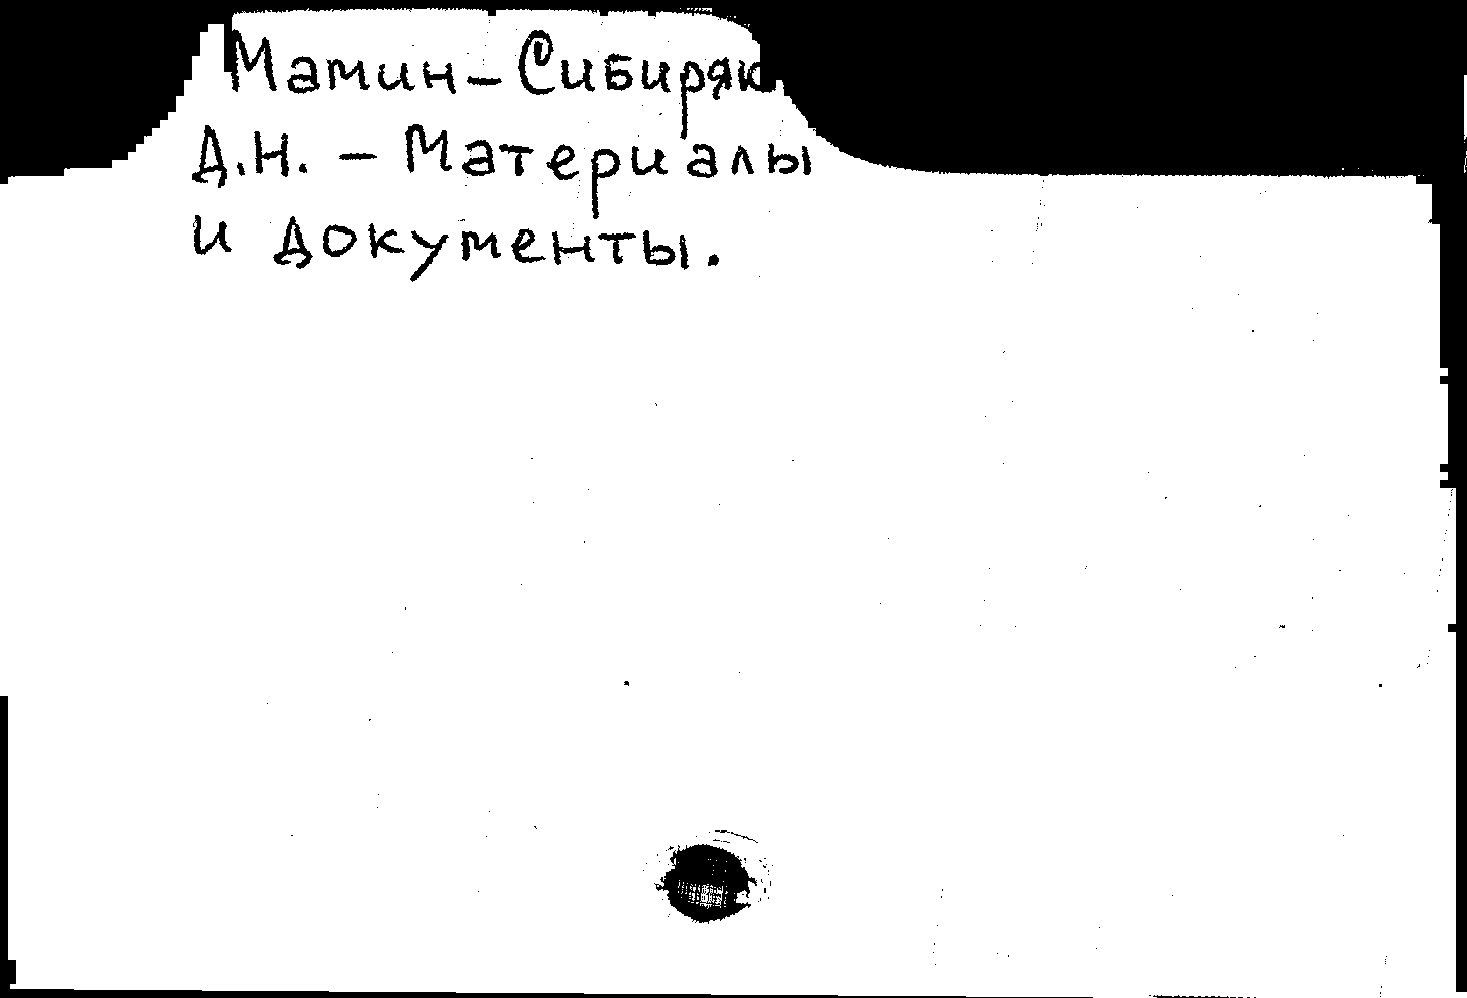 Мамин-Сибиряк
Д.Н. - Материалы
и документы.